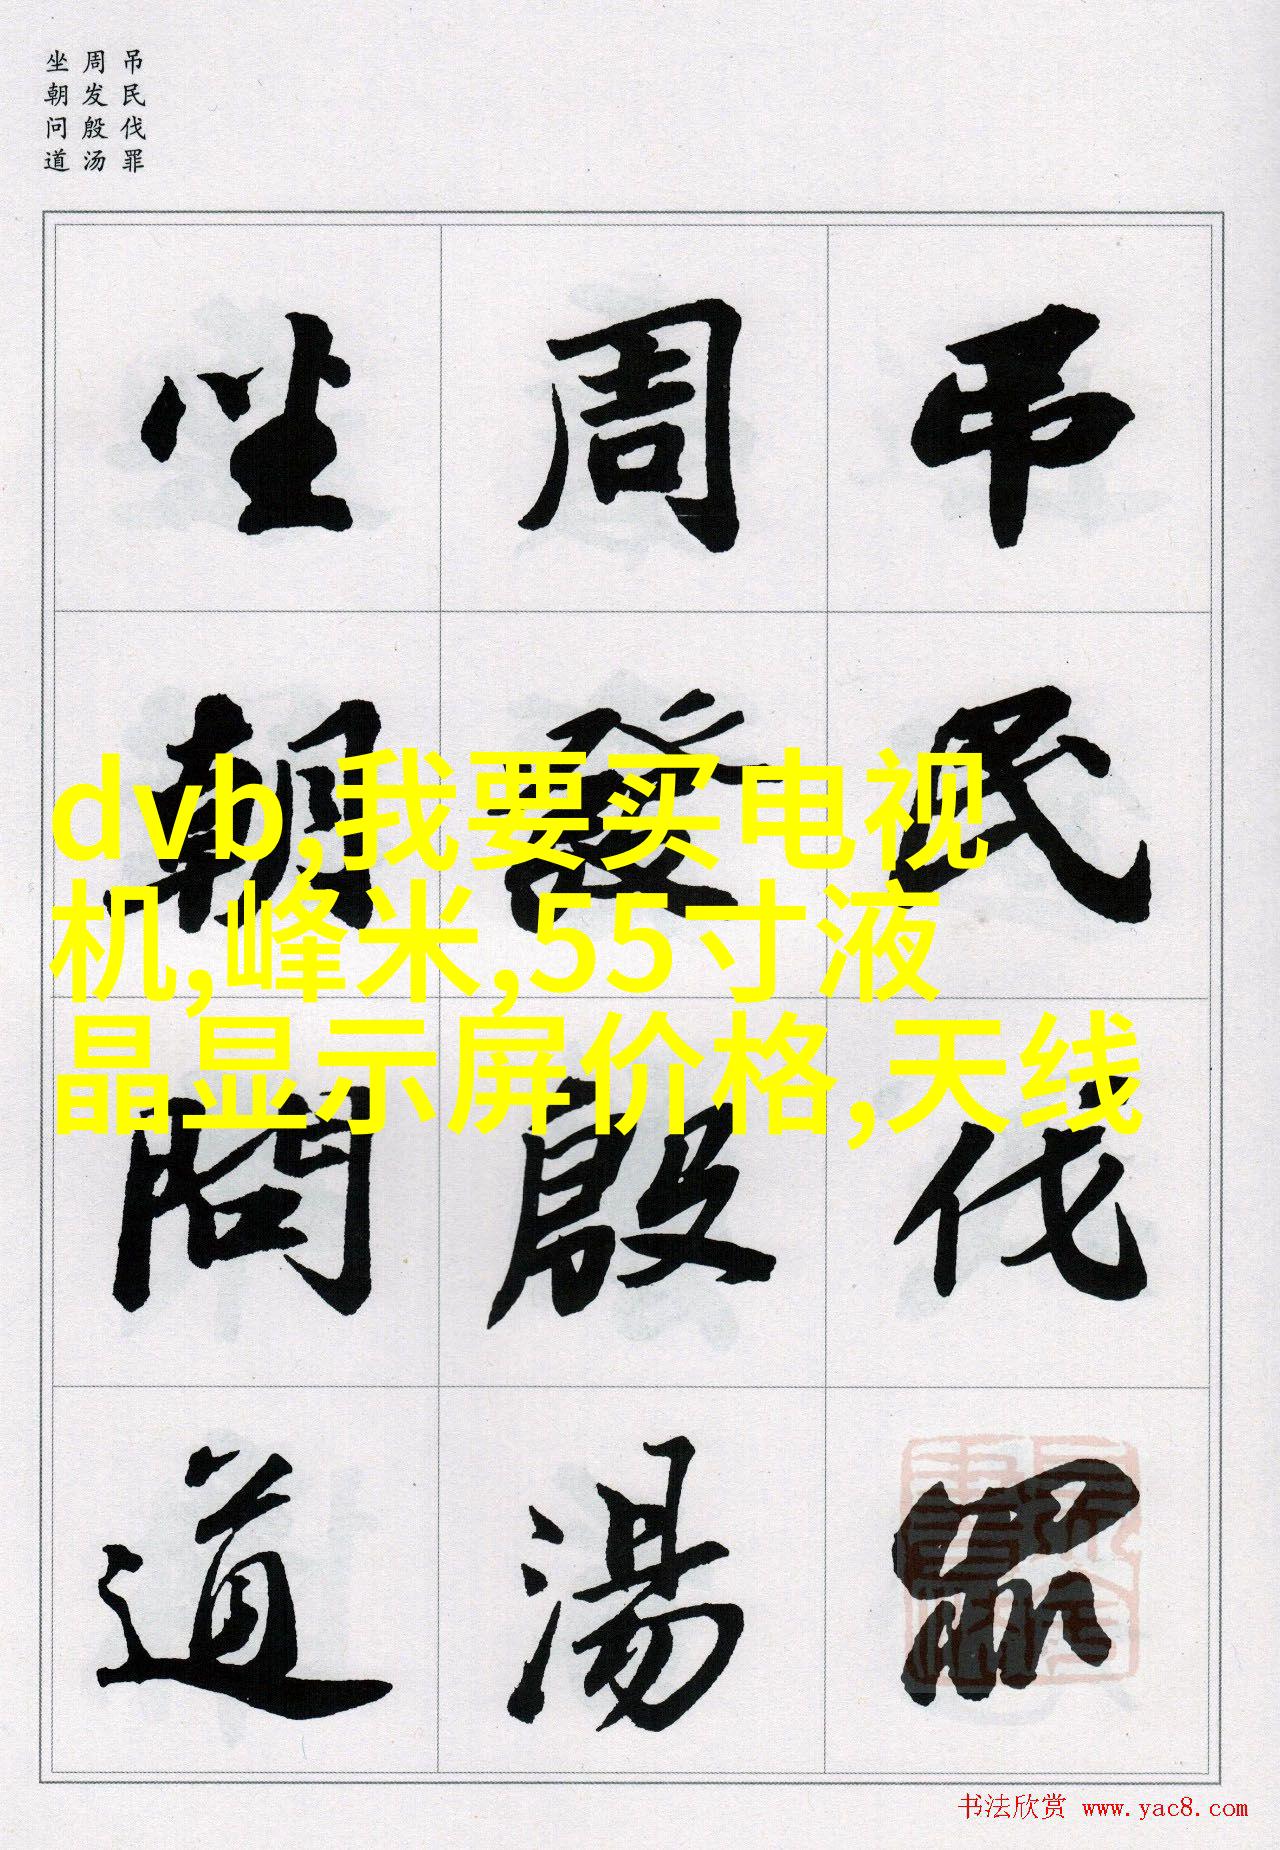 吊民伐罪
周发殷汤
坐朝问道
吊民伐罪
周發殷湯
坐朝問道
dvb,我要买电视
机,峰米,55寸液
晶显示屏价格,天线
书法欣赏 www.yac8.com